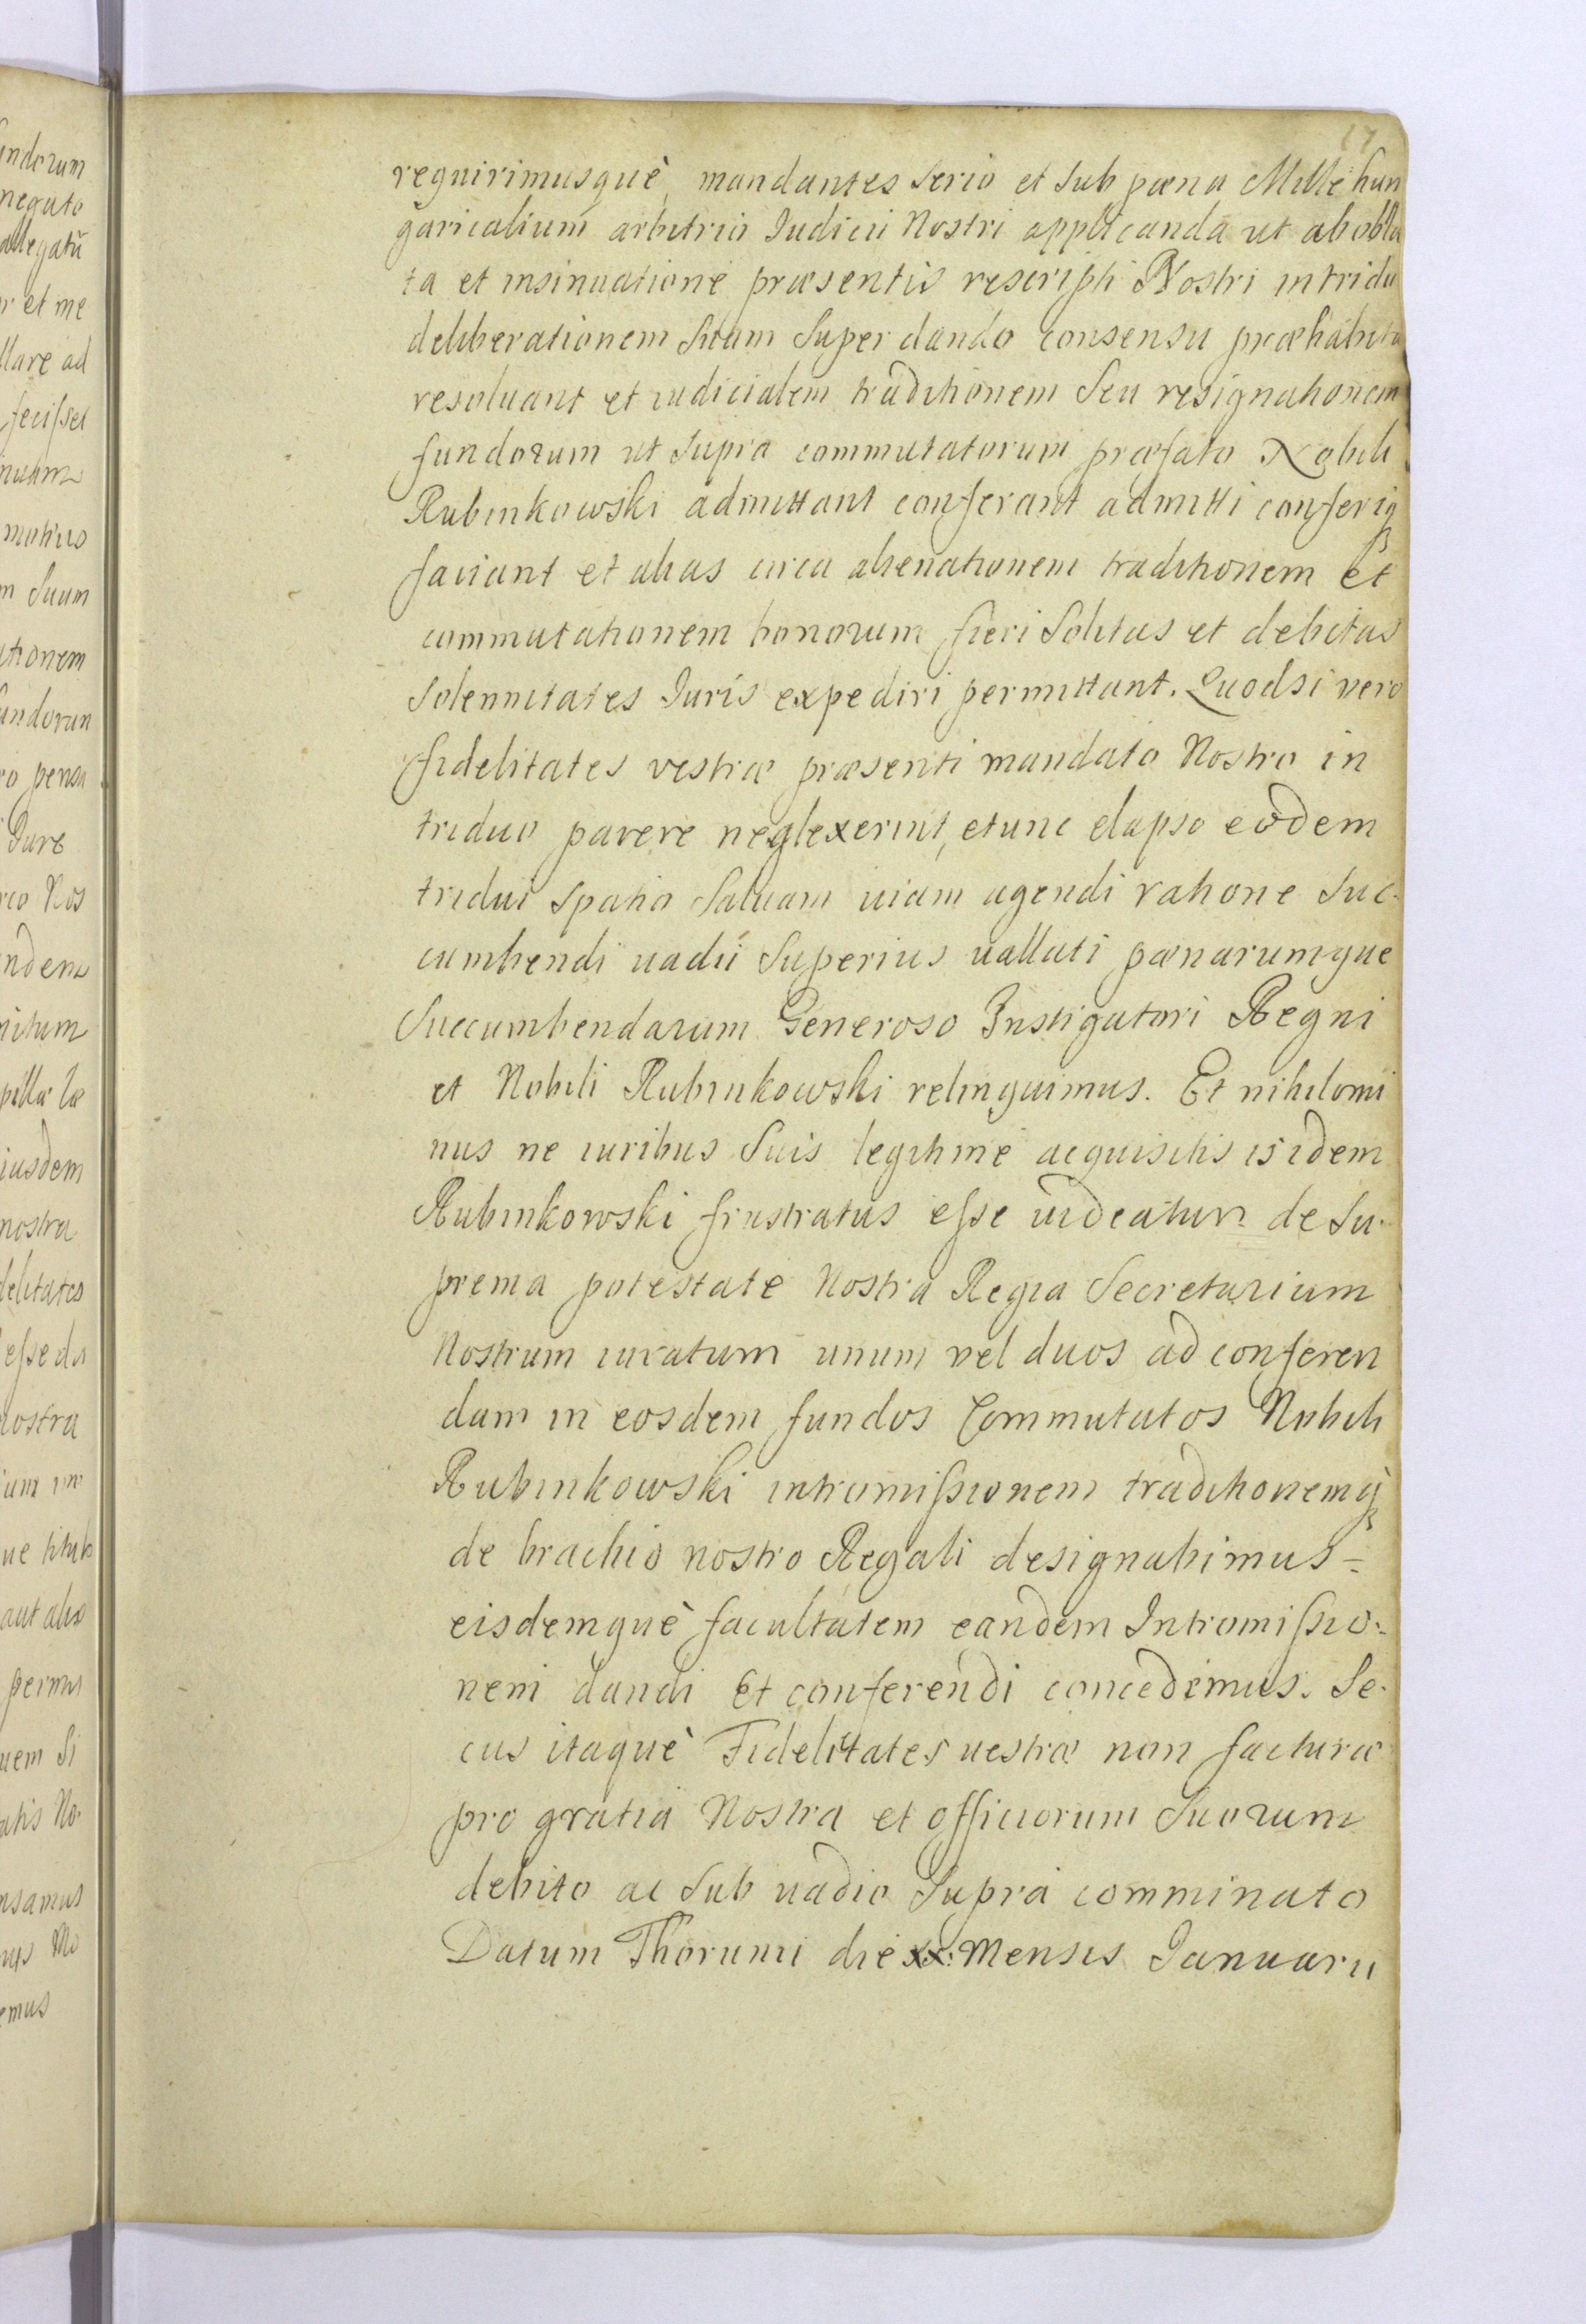 17
requirimusquè, mandantes Serio et Sub pœna Mille hun
garicalium arbitrio Iudicii Nostri applicanda ut ab obla
ta et insinuatione præsentis rescripti Nostri intridu
deliberationem Suam Super dando consensu præhabita
resoluant et iudicialem traditionem Seu resignationem
fundorum ut Supra commutatorum præfato Nobili
Rubinkowski admittant conferant admitti conferiq
faciant et alias circa alienationem traditionem et
commutationem bonorum fieri Solitas et debitas
Solennitates Iuris expediri permittant. Quodsi vero
fidelitates vestræ præsenti mandato Nostro in
triduo parere neglexerint, etunc elapso eodem
tridui Spatio Saluam uiam agendi ratione Suc-
cumbendi uadii Superius uallati pœnarumque
Succumbendarum Generoso Instigatori Regni
et Nobili Rubinkowski relinquimus. Et nihilomi
nus ne iuribus Suis legitime acquisitis isidem
Rubinkowski frustratus esse uideatur de Su-
prema potestate Nostra Regia Secretarium
Nostrum iuratum unum vel duos ad conferen
dam in eosdem fundos Commutatos Nobili
Rubinkowski intromissionem traditionemq
de brachio nostro Regali designabimus=
eisdemquè facultatem eandem Intromissio=
nem dandi Et conferendi concedimus. Se-
cus itaquè Fidelitates uestræ non facturæ
pro gratia Nostra et officiorum Suorum
debito ac Sub uadio Supra comminato
Datum Thorunii die xx. Mensis Ianuarii